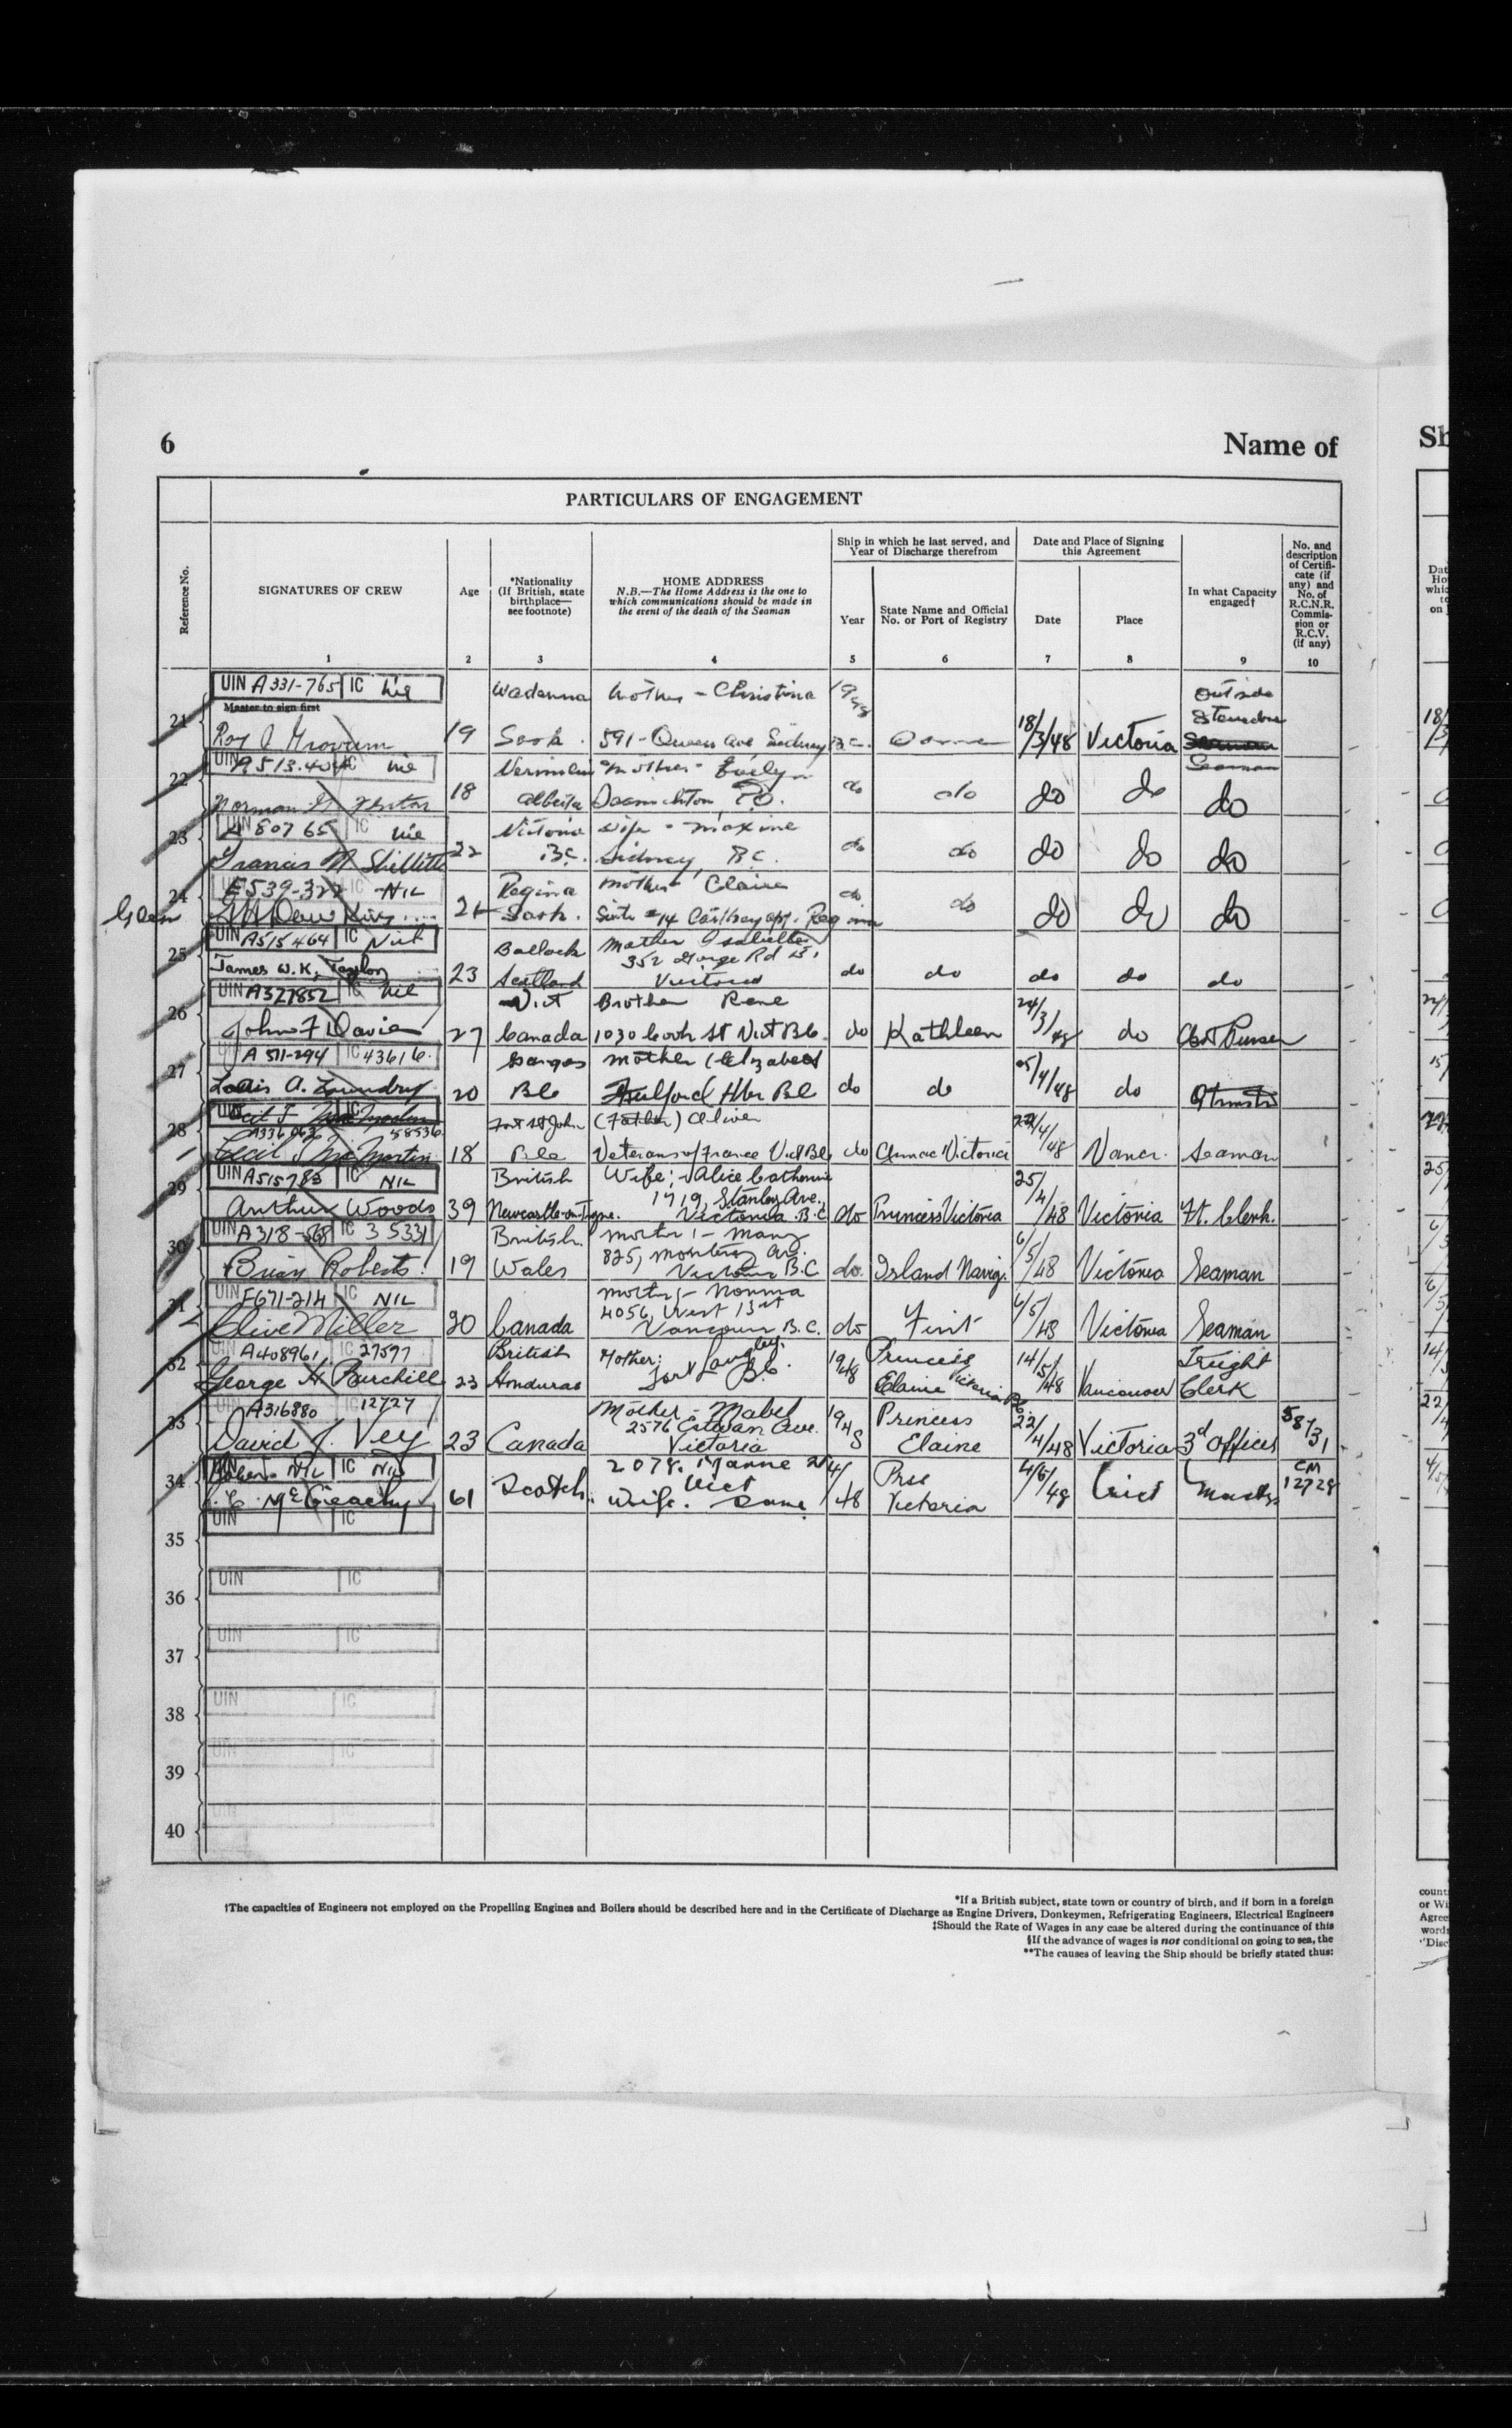 6
Name of
Sh
PARTICULARS OF ENGAGEMENT
Reference No.
SIGNATURES OF CREW
1
Age
2
*Nationality
(If British, state
birthplace—
see footnote)
3
HOME ADDRESS
N.B.—The Home Address is the one to
which communications should be made in
the event of the death of the Seaman
4
Ship in which he last served, and
Year of Discharge therefrom
Year
5
State Name and Official
No. or Port of Registry
6
Date and Place of Signing
this Agreement
Date
7
Place
8
In what Capacity
engaged†
9
No. and
description
of Certifi-
cate (if
any) and
No. of
R.C.N.R.
Commis-
sion or
R.C.V.
(if any)
10
UIN A331-765 IC Nil
Master to sign first
21 19 Sask. Mother - Christina 591 - Queens Ave Sidney B.C. 18/3/48 Victoria Outside
Seaman
UIN A513.404 IC Nil
22 Norman 18 Alberta Mother - Evelyn Saanichton P.O. do do do do do
UIN 80765 IC Nil
23 Francis N 22 Victoria B.C. Wife - Maxine Sidney, B.C. do do do do do
UIN E539-322 IC NIL
Glen
24 21 Regina Sask. Mother Claire Regina do do do do do
UIN A515464 IC
25 James W.K. Taylor 23 Scotland Mother 352 Gorge Rd Victoria do do do do do
UIN A327852 IC Nil
26 John F Davie 27 Vict Canada Brother Rene 1030 Cook St Vict BC do Kathleen 24/3/48 do Asst Purser
A 511-294 IC 43616
27 Louis A. 20 Ganges BC Mother (Elizabeth Fulford Hbr BC do do 25/4/48 do
UIN IC
A336063 58536
28 Cecil J McMartin 18 Fort St John BC (Father) Oliver Veterans of France Vict BC do Victoria 22/4/48 Vancr. Seaman
UIN A515783 IC NIL
29 Arthur Woods 39 British Newcastle-on-Tyne. Wife; Alice Catherine 1719, Stanley Ave., Victoria B.C do Princess Victoria 25/4/48 Victoria Ft. Clerk.
UIN A318-568 IC 35331
30 Brian Roberts 19 British Wales Mother:- Mary 825, Monterey Ave. Victoria B.C do. Island Navig. 6/5/48 Victoria Seaman
UIN F671-214 IC NIL
31 Clive Miller 20 Canada Mother:- Norma 4056, West 13th Vancouver B.C. do First 6/5/48 Victoria Seaman
UIN A408961 IC 27597
32 George H Burchill 23 British Honduras Mother: Fort Langley. B.C. 1948 Princess Elaine Victoria B.C. 14/5/48 Vancouver Freight Clerk
A316880 12727
33 David J. Vey 23 Canada Mother - Mabel 2576 Estevan Ave. Victoria 1948 Princess Elaine 22/4/48 Victoria 3d Officer 58731
UIN NIL IC Nil
34 McGeachy 61 Scotch. 2078. Vict Wife. Same 48 Prss Victoria 4/6/48 Vict Master CM 12728
UIN IC
35
UIN IC
36
UIN IC
37
UIN IC
38
UIN IC
39
UIN IC
40
*If a British subject, state town or country of birth, and if born in a foreign
†The capacities of Engineers not employed on the Propelling Engines and Boilers should be described here and in the Certificate of Discharge as Engine Drivers, Donkeymen, Refrigerating Engineers, Electrical Engineers
‡Should the Rate of Wages in any case be altered during the continuance of this
§If the advance of wages is not conditional on going to sea, the
**The causes of leaving the Ship should be briefly stated thus: